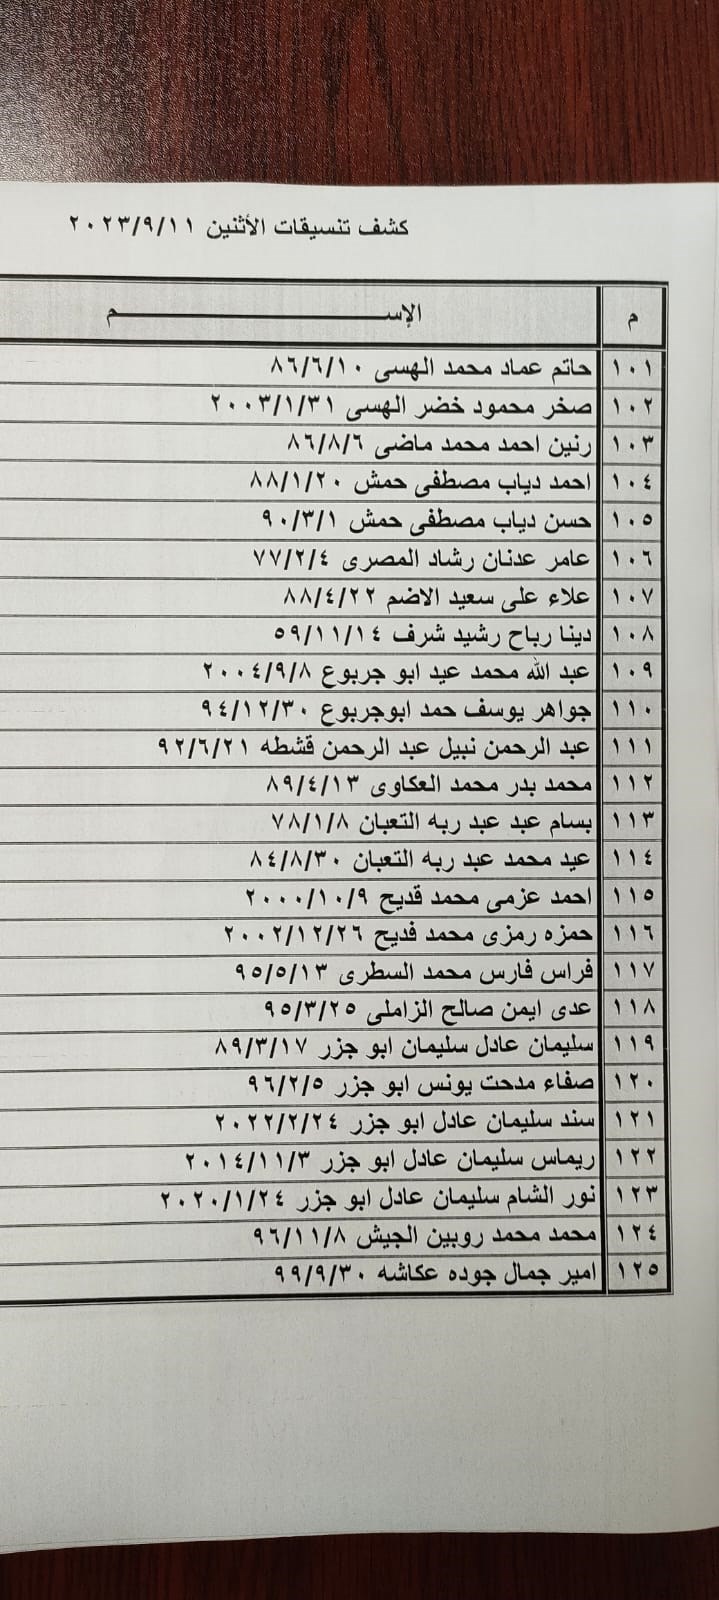 كشف تنسيقات الأثنين ٢٠٢٣/٩/١١
م الإســـــــــم
١٠١ حاتم عماد محمد الهسى ٨٦/٦/١٠
١٠٢ صخر محمود خضر الهسى ٢٠٠٣/١/٣١
١٠٣ رنين احمد محمد ماضى ٨٦/٨/٦
١٠٤ احمد دياب مصطفى حمش ٨٨/١/٢٠
١٠٥ حسن دياب مصطفى حمش ٩٠/٣/١
١٠٦ عامر عدنان رشاد المصرى ٧٧/٢/٤
١٠٧ علاء على سعيد الاضم ٨٨/٤/٢٢
١٠٨ دينا رباح رشيد شرف ٥٩/١١/١٤
١٠٩ عبد الله محمد عيد ابو جربوع ٢٠٠٤/٩/٨
١١٠ جواهر يوسف حمد ابوجربوع ٩٤/١٢/٣٠
١١١ عبد الرحمن نبيل عبد الرحمن قشطه ٩٢/٦/٢١
١١٢ محمد بدر محمد العكاوى ٨٩/٤/١٣
١١٣ بسام عبد عبد ربه التعبان ٧٨/١/٨
١١٤ عيد محمد عبد ربه التعبان ٨٤/٨/٣٠
١١٥ احمد عزمى محمد قديح ٢٠٠٠/١٠/٩
١١٦ حمزه رمزى محمد فديح ٢٠٠٢/١٢/٢٦
١١٧ فراس فارس محمد السطرى ٩٥/٥/١٣
١١٨ عدى ايمن صالح الزاملى ٩٥/٣/٢٥
١١٩ سليمان عادل سليمان ابو جزر ٨٩/٣/١٧
١٢٠ صفاء مدحت يونس ابو جزر ٩٦/٢/٥
١٢١ سند سليمان عادل ابو جزر ٢٠٢٢/٢/٢٤
١٢٢ ريماس سليمان عادل ابو جزر ٢٠١٤/١١/٣
١٢٣ نور الشام سليمان عادل ابو جزر ٢٠٢٠/١/٢٤
١٢٤ محمد محمد روبين الجيش ٩٦/١١/٨
١٢٥ امير جمال جوده عكاشه ٩٩/٩/٣٠